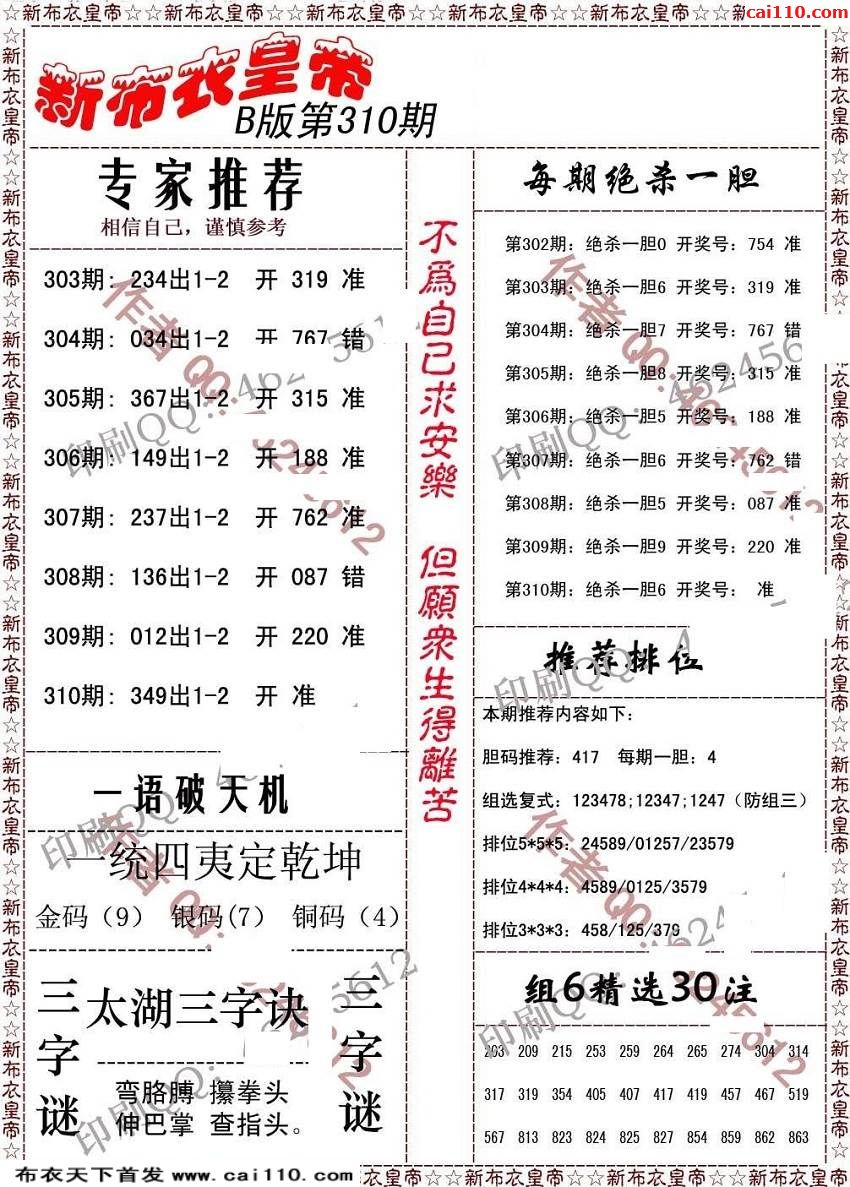 ☆☆新布衣皇帝☆☆新布衣皇帝☆☆新布衣皇帝☆☆新布衣皇帝☆☆新布衣皇帝☆☆新
cai110.com
新布衣皇帝
B版第310期
专家推荐
相信自己，谨慎参考
303期：234出1-2 开 319 准
304期：034出1-2 开 767 错
305期：367出1-2 开 315 准
306期：149出1-2 开 188 准
307期：237出1-2 开 762 准
308期：136出1-2 开 087 错
309期：012出1-2 开 220 准
310期：349出1-2 开 准
一语破天机
一统四夷定乾坤
金码（9） 银码(7) 铜码（4）
三字谜
太湖三字诀
弯胳膊 攥拳头
伸巴掌 查指头。
三字谜
不為自己求安樂 但願衆生得離苦
每期绝杀一胆
第302期：绝杀一胆0 开奖号：754 准
第303期：绝杀一胆6 开奖号：319 准
第304期：绝杀一胆7 开奖号：767 错
第305期：绝杀一胆8 开奖号：315 准
第306期：绝杀一胆5 开奖号：188 准
第307期：绝杀一胆6 开奖号：762 错
第308期：绝杀一胆5 开奖号：087 准
第309期：绝杀一胆9 开奖号：220 准
第310期：绝杀一胆6 开奖号： 准
推荐排位
本期推荐内容如下：
胆码推荐：417 每期一胆：4
组选复式：123478;12347;1247（防组三）
排位5*5*5：24589/01257/23579
排位4*4*4：4589/0125/3579
排位3*3*3：458/125/379
组6精选30注
203 209 215 253 259 264 265 274 304 314
317 319 354 405 407 417 419 457 467 519
567 813 823 824 825 827 854 859 862 863
布衣天下首发 www.cai110.com
衣皇帝☆☆新布衣皇帝☆☆新布衣皇帝☆☆新布衣皇帝☆☆